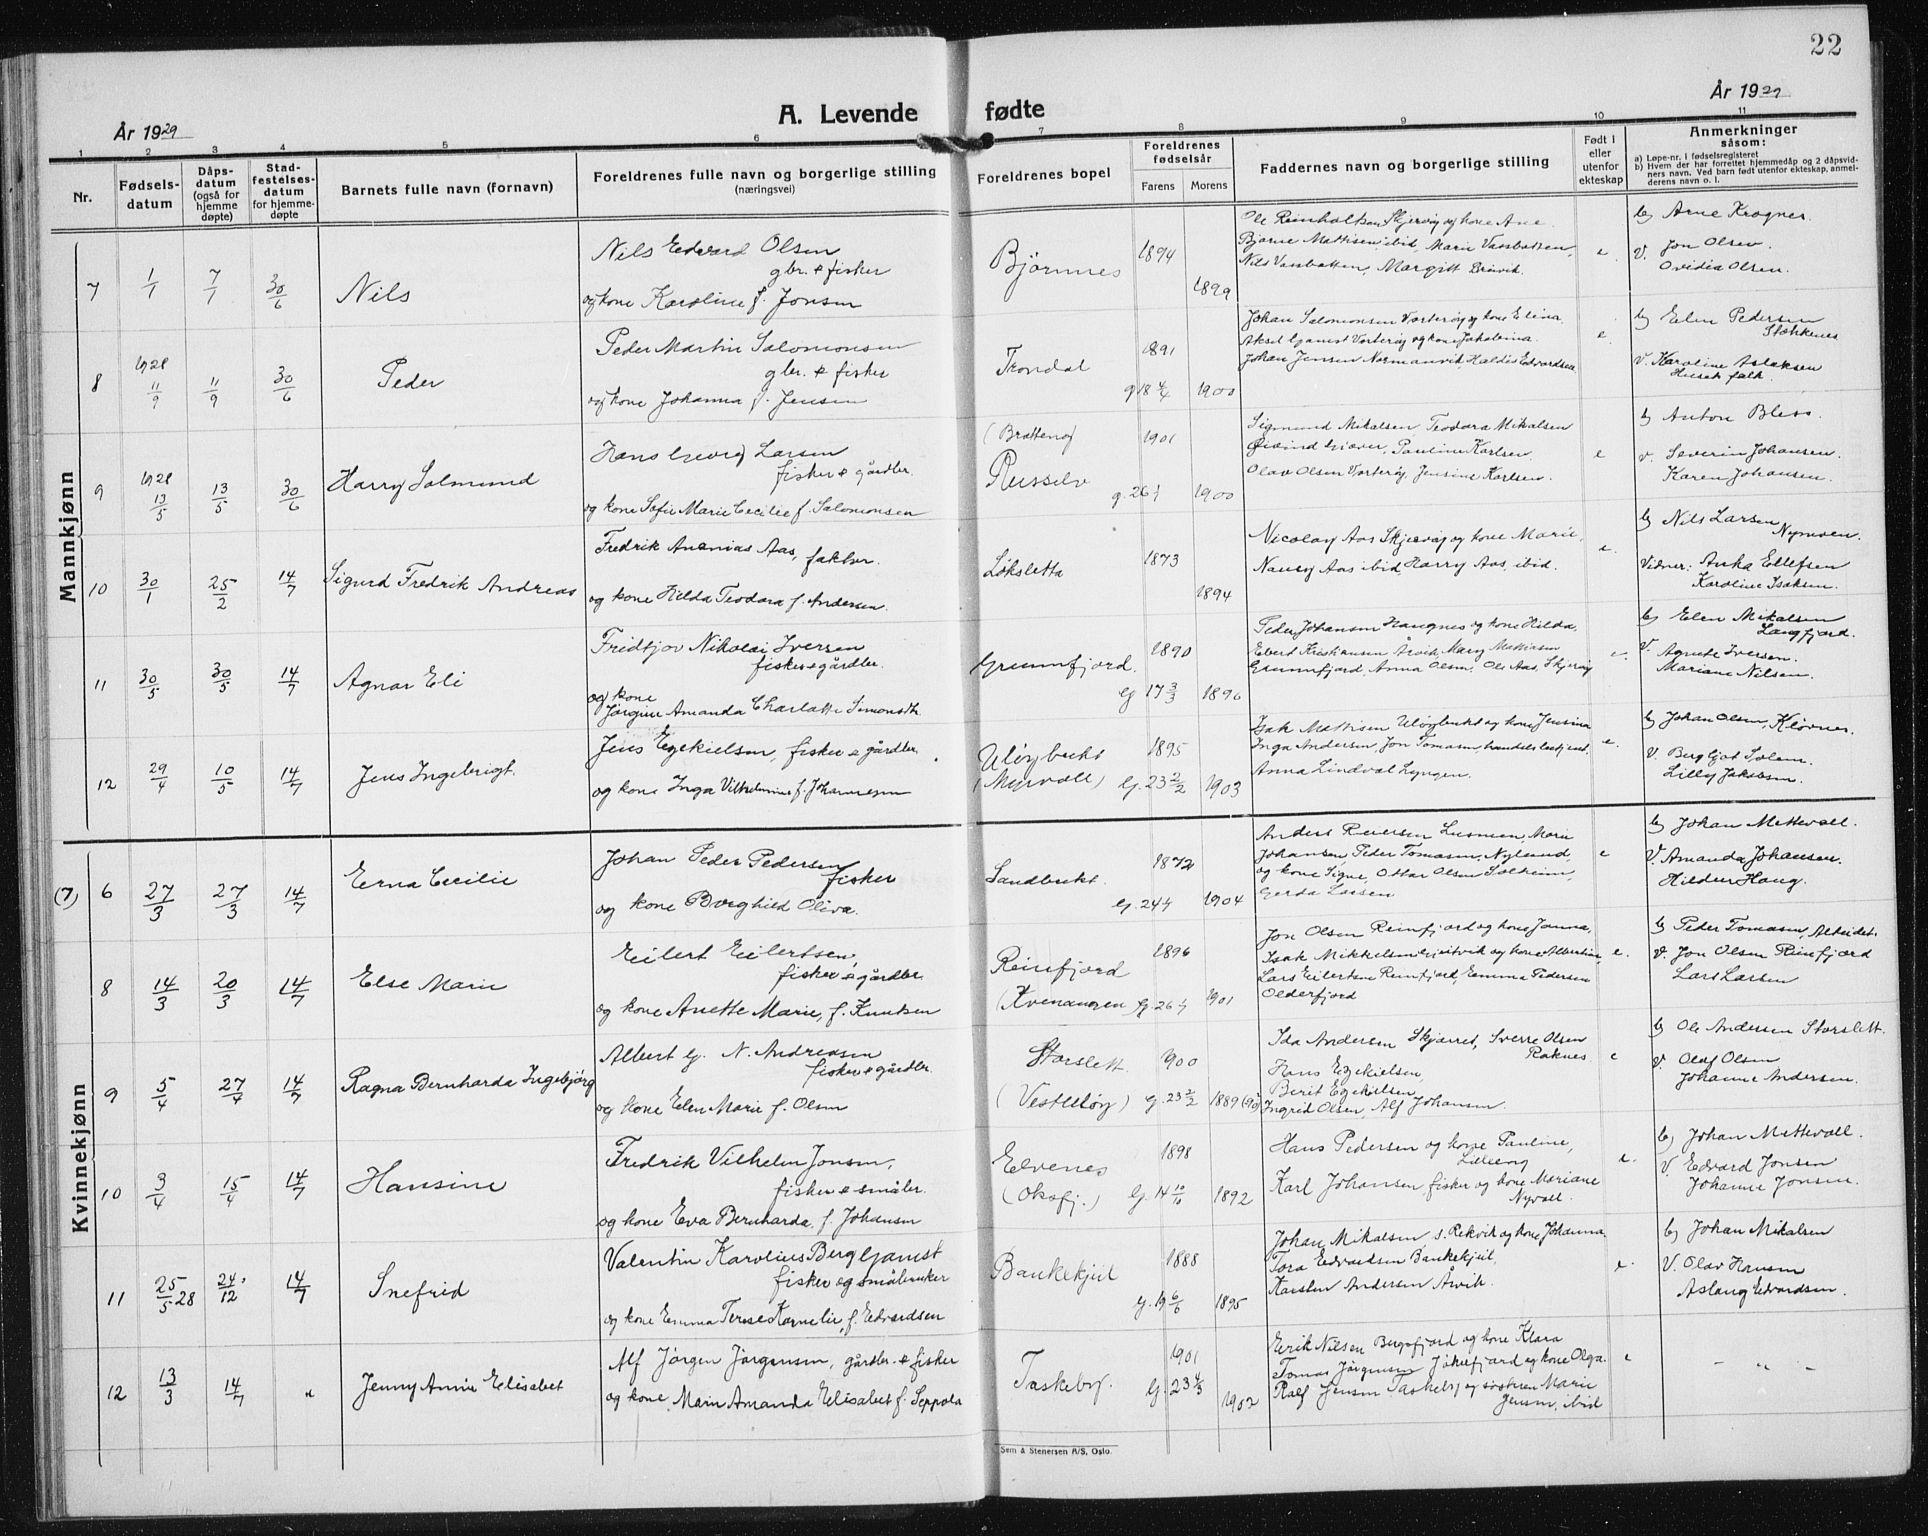 22
År 1929
A. Levende
fødte
År 1929
1 2 3 4 5 6 7 8 9 10 11
Nr.
Fødsels-
datum
Dåps-
datum
(også for
hjemme
døpte)
Stad-
festelses-
datum
for hjemme-
døpte
Barnets fulle navn (fornavn)
Foreldrenes fulle navn og borgerlige stilling
(næringsvei)
Foreldrenes bopel
Foreldrenes
fødselsår
Farens Morens
Faddernes navn og borgerlige stilling
Født i
eller
utenfor
ekteskap
Anmerkninger
såsom:
a) Løpe-nr. i fødselsregisteret
b) Hvem der har forrettet hjemmedåp og 2 dåpsvid-
ners navn. Ved barn født utenfor ekteskap, anmel-
derens navn o. l.
Mannkjønn
7 1/1 7/1 30/6 Nils
Nils Edvard Olsen
gbr. & fisker
og kone Karoline f. Jonsen
Bjørnnes
1894
1899
Ole Reinholtsen Skjervøy og kone Ane
Bjarne Mattisen, ibid, Marie Vassbotten,
Nils Vassbotten, Margitt
e
b) Arne Krogner
V. Jon Olsen
Ovidia Olsen.
8 1928 11/9 11/9 30/6 Peder
Peder Martin Salomonsen
gbr. & fisker
og kone Johanna f. Jensen
Trondal
1891
1900
Johan Salomonsen Vorterøy og kone Elina
Aksel Gamst Vorterøy og kone Jakobina
Johan Jensen Normannvik Haldis Edvardsen
e
b) Elen Pedersen
Stokkenes
V. Karoline Aslaksen
Husets folk.
9 1928 13/5 13/5 30/6 Harry Salmund
Hans Georg Larsen
fisker & gårdbr.
og kone Sofie Marie Cecilie f. Salomonsen
(Brattenøy)
Russelv
1901
1900
Sigmund Mikalsen, Teodora Mikalsen
Øivind Giæver, Pauline Karlsen
Olav Olsen Vorterøy, Jensine Karlsen.
e
b) Anton Bless.
v. Severin Johansen.
Karen Johansen.
10 30/1 25/2 14/7 Sigurd Fredrik Andreas
Fredrik Ananias Aas, faktor.
og kone Hilda Teodora f. Andersen.
Løksletta
1873
1894
Nicolay Aas Skjervøy og kone Marie,
Nancy Aas ibid, Harry Aas, ibid.
e.
b) Nils Larsen
Nymoen.
Vidner: Anka Ellefsen
Karoline Isaksen.
11 30/5 30/5 14/7 Agnar Eli
Fridtjov Nikolai Iversen
fisker & gårdbr.
og kone
Jørgine Amanda Charlotte Simonsdtr.
Grunnfjord.
1890
g 17 3/3 1896
Peder Johansen Haugnes og kone Hilda,
Ebert Kristiansen Årvik, Mary Mathisen
Grunnfjord, Anna Olsen, Ole Aas, Skjervøy
e.
b) Elen Mikalsen
Langfjord.
V. Agnete Iversen.
Mariane Nilsen.
12 29/4 10/5 14/7 Jens Ingebrigt.
Jens Ezekielsen, fisker & gårdbr.
og kone Inga Vilhelmine f. Johannesen
Uløybukt
(Myrvoll)
1895
G. 23 2/2 1903
Isak Mattisen Uløybukt og kone Jensina
Inga Andersen, Jon Tomasen, handelsbetjent,
Anna Lindval Lyngen.
e.
b) Johan Olsen, Kløvnes.
V. Bergljot Solem.
Lilly Jakobsen.
Kvinnekjønn
(7) 6 27/3 27/3 14/7 Erna Cecilie
Johan Peder Pedersen
fisker
og kone Borghild Oliva.
Sandbukt.
1872
1904
Anders Reiersen, Marie
Johansen, Peder Tomasen, Nylund,
og kone Signe, Ottar Olsen Solheim,
Gerda Larsen
e
b) Johan Mettevoll.
V. Amanda Johansen.
Hildur Haug.
8 14/3 20/3 14/7 Else Marie
Eilert Eilertsen,
fisker & gårdbr.
og kone Anette Marie, f. Knutsen
Reinfjord
(Kvenangen)
1896
1901
Jon Olsen Reinfjord og kone Janna,
Isak Mikkelsen og kone Albertine
Lars Eilertsen Reinfjord, Emma Pedersen
Olderfjord
e.
b) Peder Tomasen, Alteidet.
v. Jon Olsen Reinfjord
Lars Larsen
9 5/4 27/4 14/7 Ragna Bernharda Ingebjørg
Albert G. N. Andreasen
fisker & gårdbr.
og kone Elen Marie f. Olsen
Storslett.
(Vesteløy)
1900
G. 23 2/2 1889 (90)
Ida Andersen, Sverre Olsen
Raknes
Hans Ezekielsen,
Berit Ezekielsen,
Ingrid Olsen, Alf Johansen.
e
b) Ole Andersen Storslett.
v. Olaf Olsen
Johanne Andersen.
10 3/4 15/4 14/7 Hansine
Fredrik Vilhelm Jonsen,
fisker & småbr.
og kone Eva Bernharda f. Johansen
Elvenes
(Oksfj.)
1898
G. 14 10/10 1892
Hans Pedersen og kone Pauline,
Lilleeng
Karl Johansen, fisker og kone Mariane
Nyvoll.
e.
b) Johan Mettevoll.
V. Edvard Jonsen
Johanne Jonsen.
11 25/5 28 24/12 14/7 Snefrid
Valentin Karolius Berg Gamst
fisker og småbruker
og kone Emma Terese Kornelie, f. Edvardsen
Bankekjeil
1888
G. 19 6/6 1895
Johan Mikalsen, s. Rekvik og kone Johanna
Tora Edvardsen Bankekjeil,
Karsten Andersen Årvik.
e.
b) Johan Mikalsen
V. Olav Hansen
Aslaug Edvardsen.
12 13/3 14/7 " Jenny Annie Elisabet
Alf Jørgen Jørgensen, gårdbr. & fisker
og kone Marin Amanda Elisabet f. Seppola
Taskeby.
1901
G. 23 4/3 1902
Erik Nilsen Bergsfjord og kone Klara
Tomas Jørgensen Jøkelfjord og kone Olga.
Ralf Jensen Taskeby og søsteren Marie
Jensen, ibid
e
– " –
Sem & Stenersen A/S, Oslo.